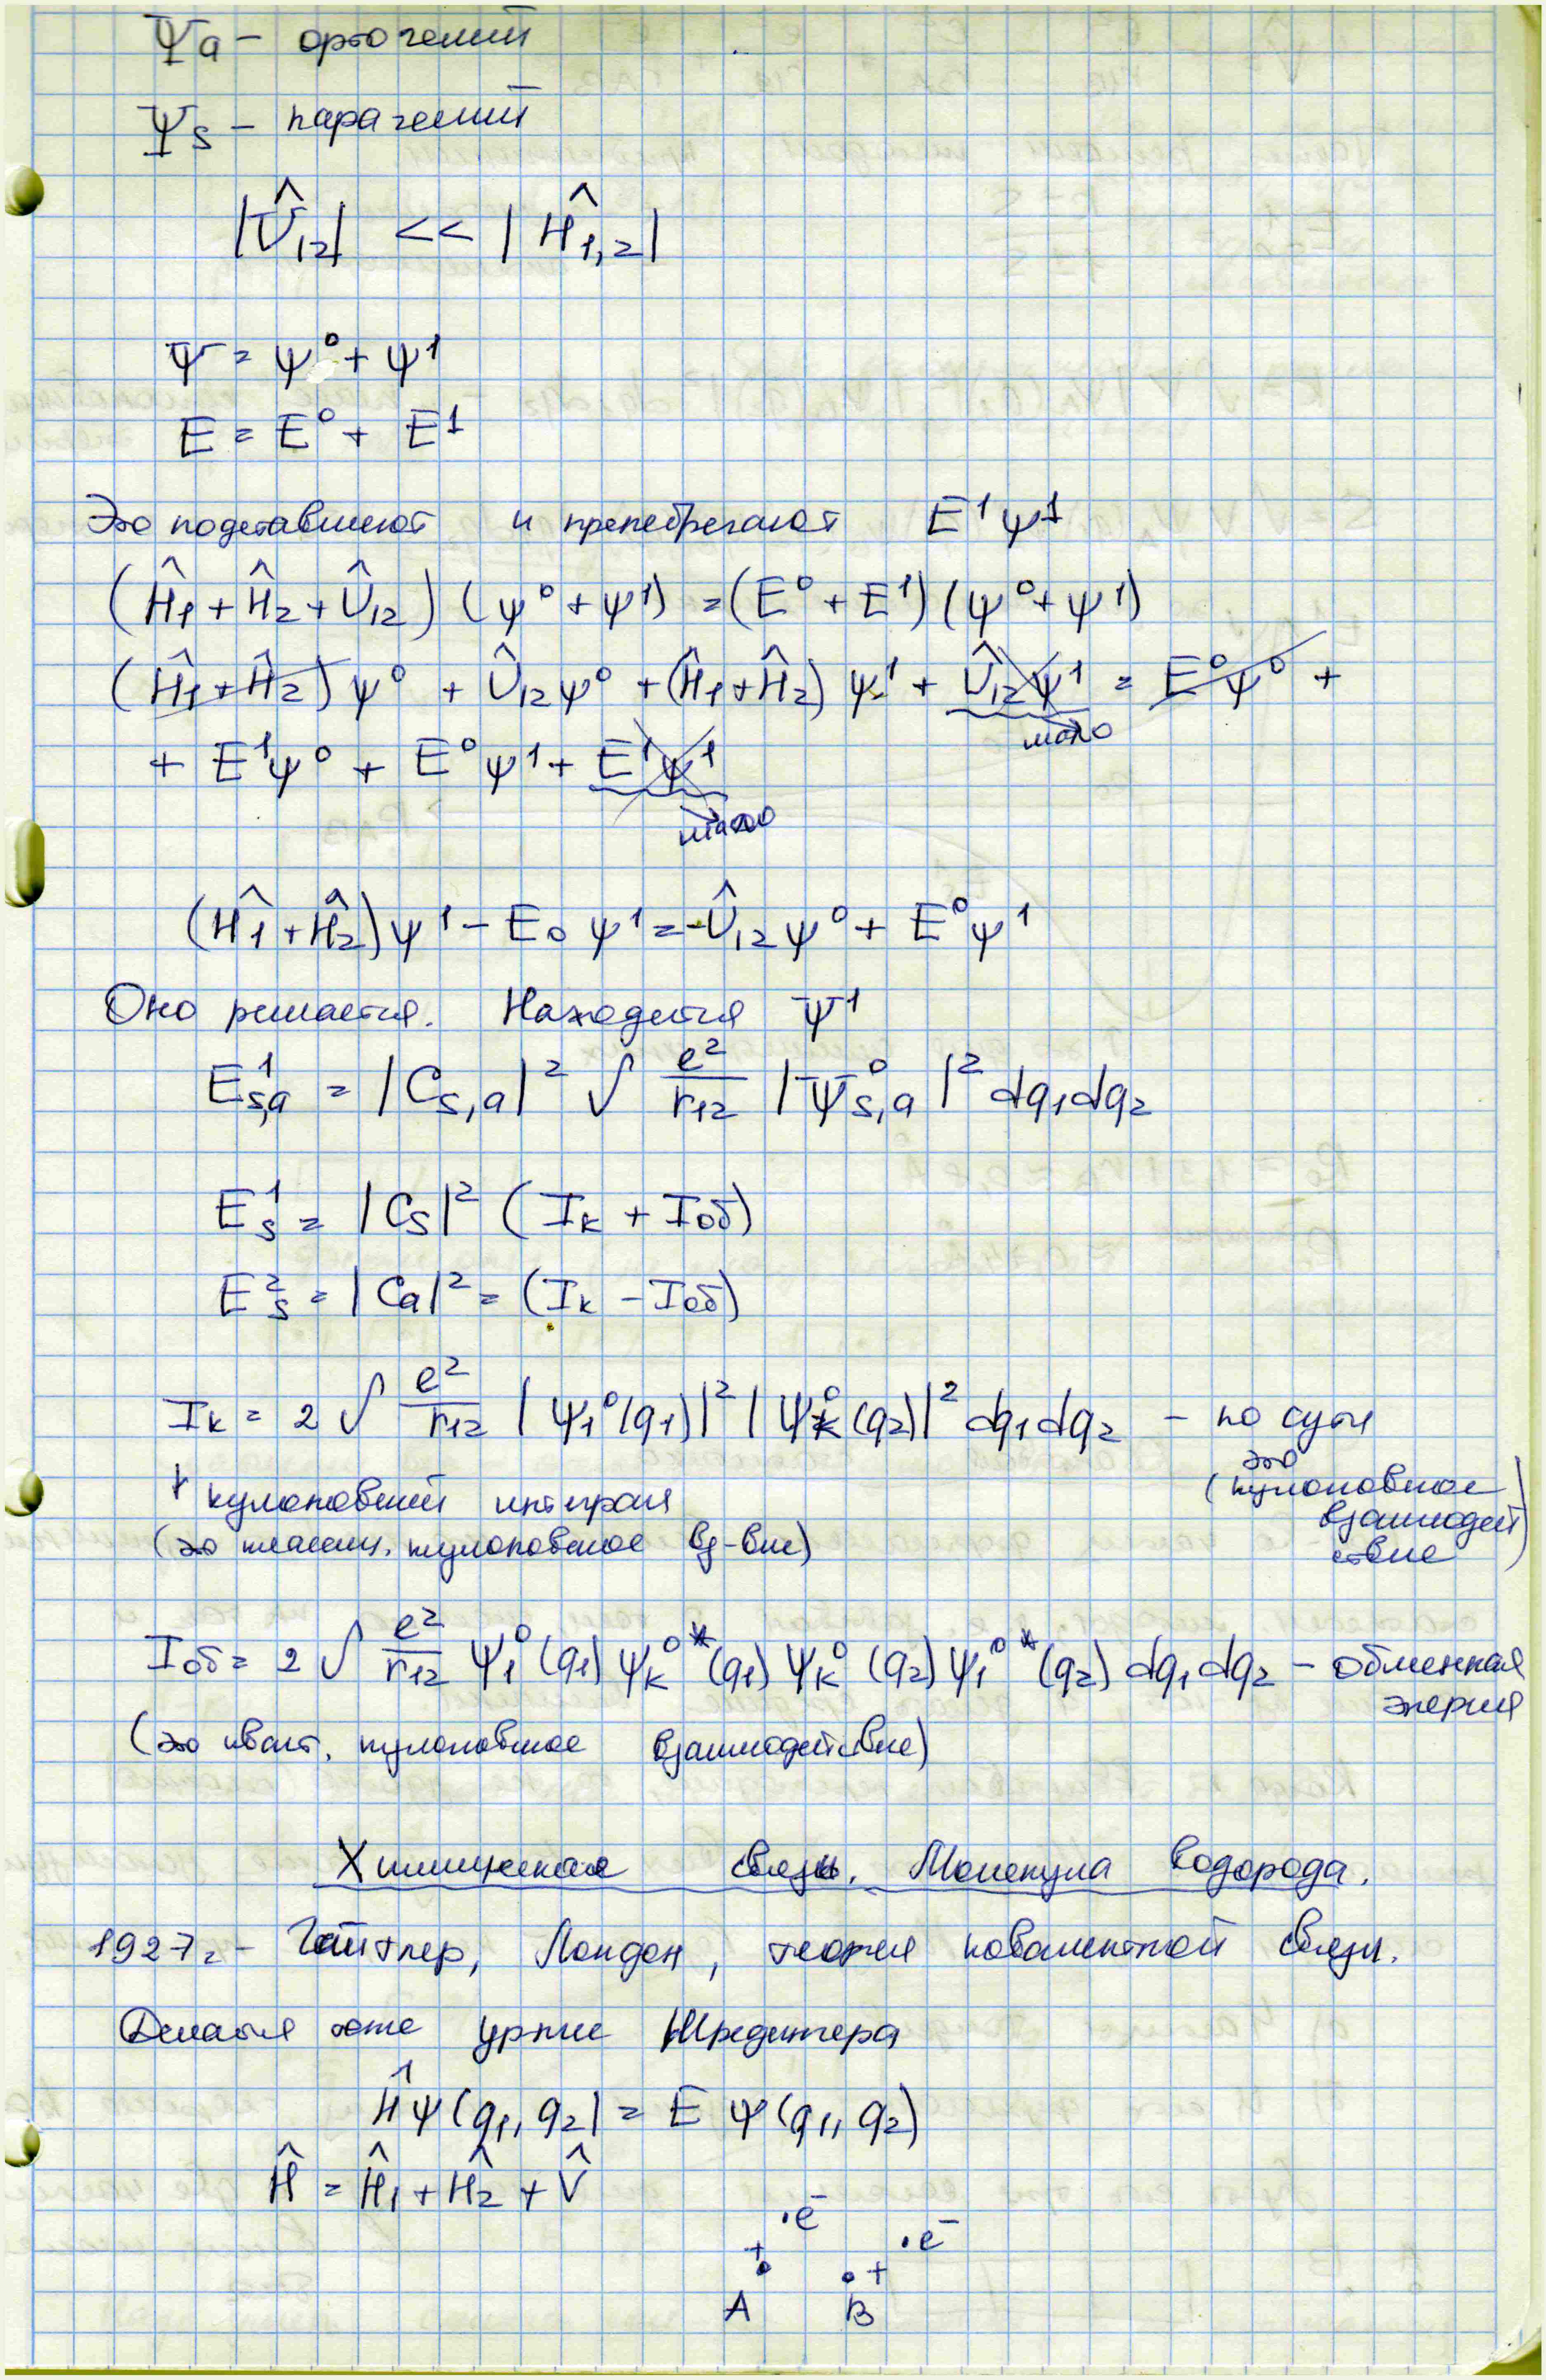 Ψa – ортогелий
Ψs – парагелий
|Û12| << |Ĥ1,2|
Ψ = ψ⁰ + ψ¹
E = E⁰ + E¹
Это подставляют и пренебрегают E¹ψ¹
(Ĥ1 + Ĥ2 + Û12) (ψ⁰ + ψ¹) = (E⁰ + E¹) (ψ⁰ + ψ¹)
(Ĥ1 + Ĥ2) ψ⁰ + Û12 ψ⁰ + (Ĥ1 + Ĥ2) ψ¹ + Û12 ψ¹ = E⁰ψ⁰ +
мало
+ E¹ψ⁰ + E⁰ψ¹ + E¹ψ¹
мало
(Ĥ1 + Ĥ2) ψ¹ – E0 ψ¹ = -Û12 ψ⁰ + E⁰ψ¹
Оно решается. Находится Ψ¹
E¹s,a = |Cs,a|² ∫ e²/r12 |Ψ⁰s,a|² dq1dq2
E¹s = |Cs|² (Iк + Iоб)
E²s = |Ca|² = (Iк – Iоб)
Iк = 2 ∫ e²/r12 |ψ1⁰(q1)|² |ψк⁰(q2)|² dq1dq2 – по сути
это
(кулоновское
взаимодей
ствие)
кулоновский интеграл
(это классич. кулоновское вз-вие)
Iоб = 2 ∫ e²/r12 ψ1⁰(q1) ψк⁰*(q1) ψк⁰(q2) ψ1⁰*(q2) dq1dq2 – обменная
энергия
(это квант. кулоновское взаимодействие)
Химическая связь. Молекула водорода.
1927г – Гайтлер, Лондон, теория ковалентной связи.
урние Шредингера
Ĥψ(q1, q2) = E ψ(q1, q2)
Ĥ = Ĥ1 + Ĥ2 + V̂
e⁻
e⁻
+
+
A B